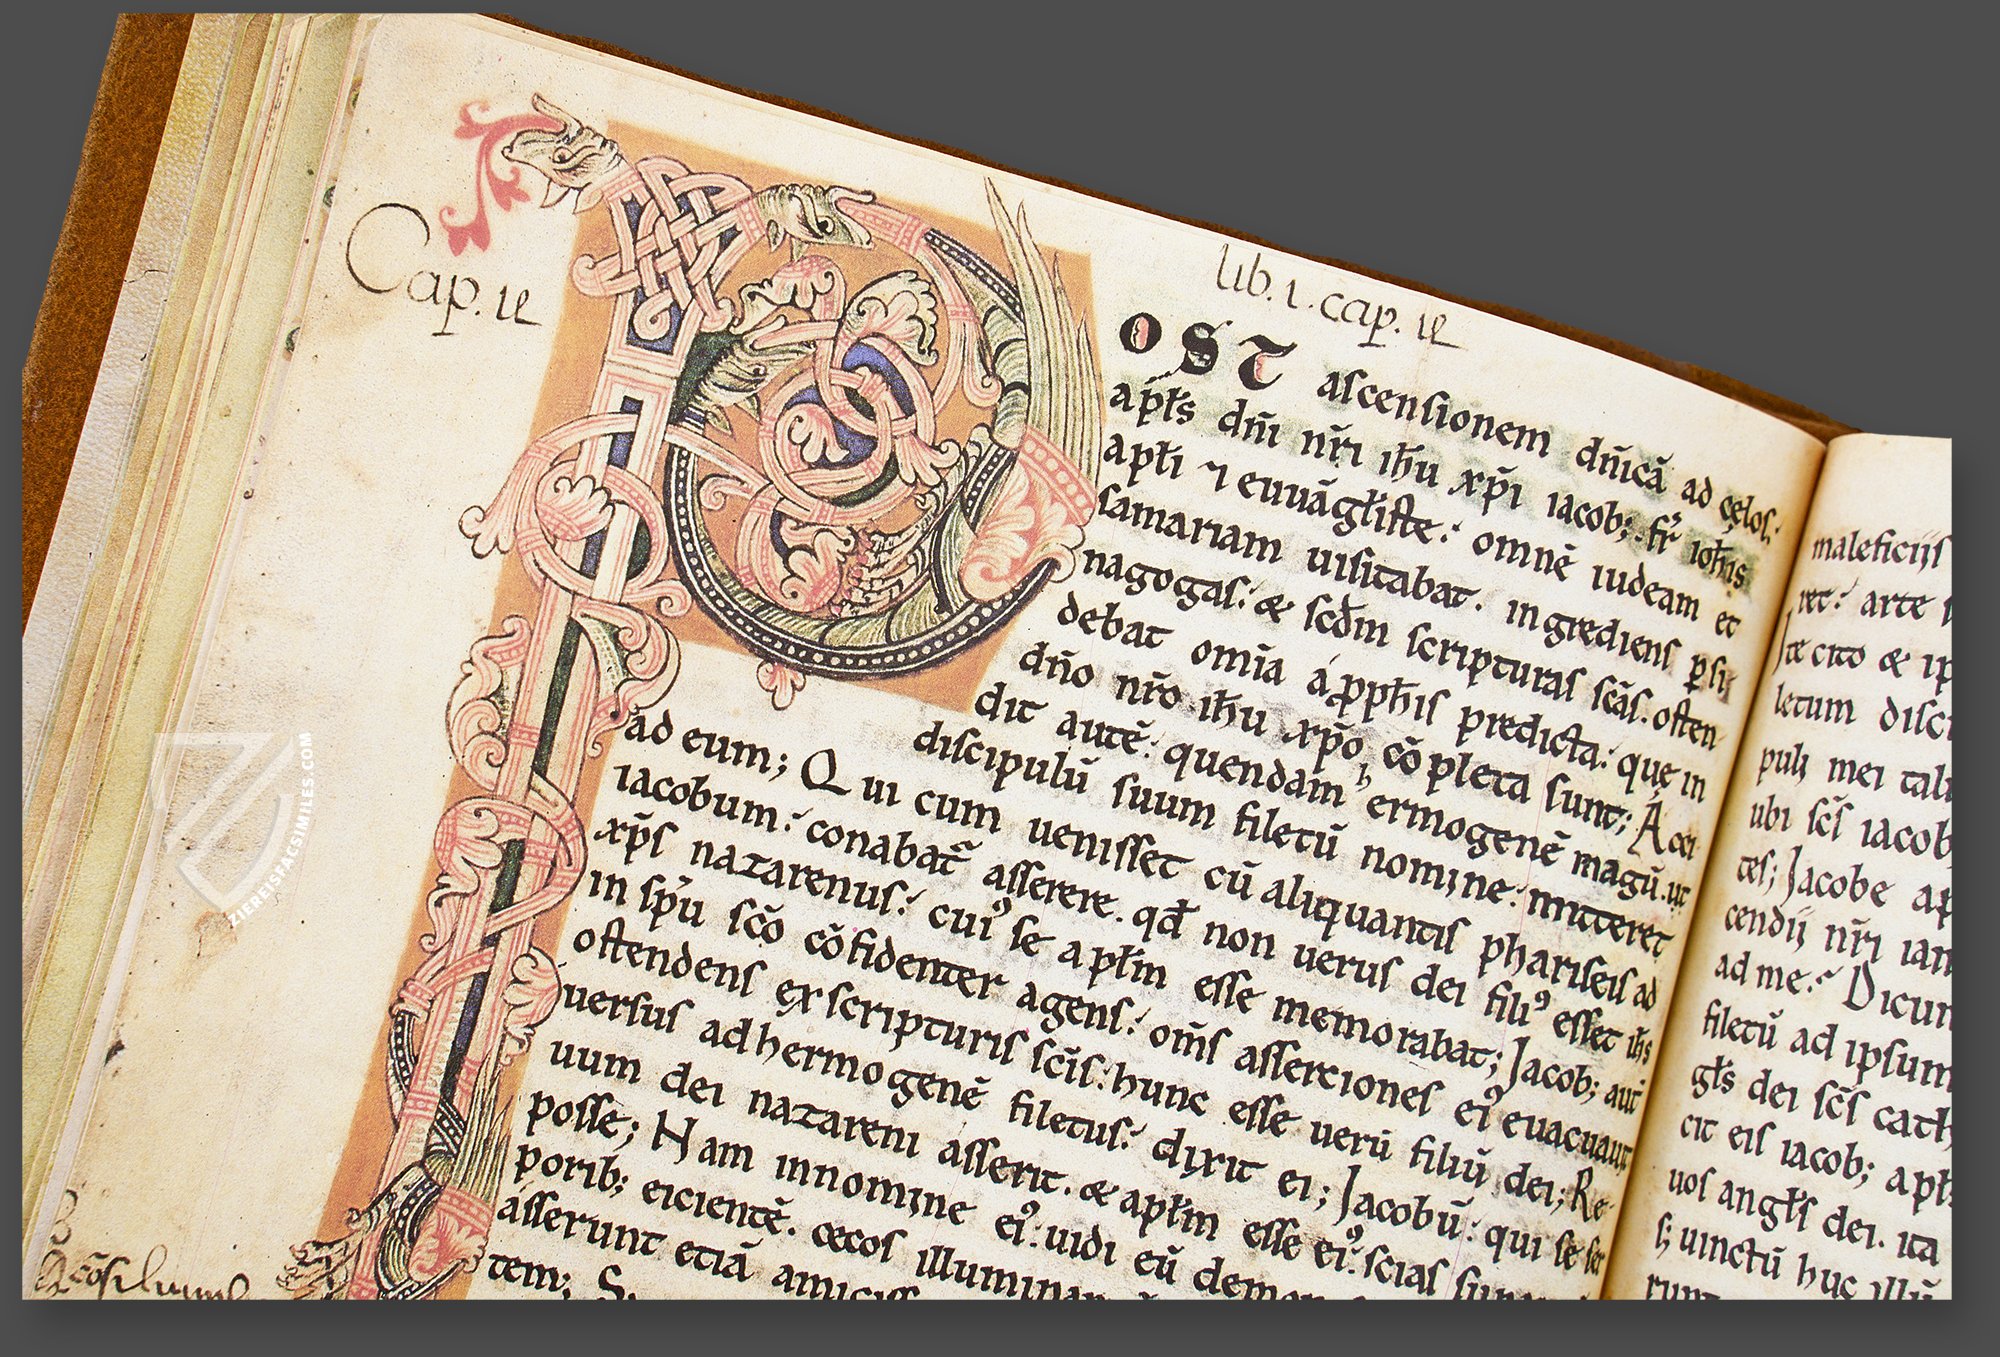 Cap. ıɩ
lib. ı. cap. ıɩ
OST ascensionem dñicã ad cęlos:
apl̃s dñi nr̃i ihũ xp̃i iacob; fr̃ ioh̃is
apl̃i ⁊ euuãgl̃iste: omnẽ iudeam et
samariam uisitabat. ingrediens p̱ si
nagogas: & scd̃m scripturas sc̃as. osten
debat omĩa a ꝓph̃is predicta: quę in
dño nr̃o ihũ xp̃o cõpleta sunt; Acci
dit autẽ: quendam hermogenẽ magũ. ut
discipulũ suum filetũ nomine: mitteret
ad eum; Qui cum uenisset cũ aliquantis phariseis ad
iacobum: conabat̃ asserere. qd̃ non uerus dei fili⁹ esset ih̃s
xp̃s nazarenus: cui⁹ se apl̃m esse memorabat; Jacob; aut̃
in sp̃u sc̃o cõfidenter agens: om̃s assertiones ei⁹ euacuauit
ostendens ex scripturis sc̃is: hunc esse uerũ filiũ dei; Re
uersus ad hermogenẽ filetus: dixit ei; Jacobũ: qui se ser
uum dei nazareni asserit. & apl̃m esse ei⁹: scias
posse; Nam in nomine ei⁹: uidi eũ
porib; eicientẽ. cęcos
asserunt etiã
tem;
maleficiis
ret: arte
te cito & ip
letum disci
puli mei tali
ubi sc̃s iacob
tes; Jacobe ap
cendij nr̃i ian
ad me: Dicun
filetũ ad ipsum
gl̃s dei sc̃s cath
cit eis iacob; apl̃
uos angl̃s dei. ita
s; uinctũ huc illũ
ZIEREISFACSIMILES.COM